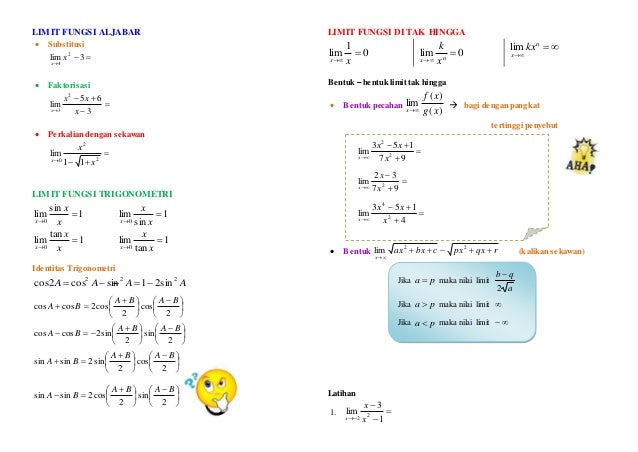 LIMIT FUNGSI ALJABAR
• Substitusi
lim x→4 x² − 3 =
• Faktorisasi
lim x→3 (x² − 5x + 6)/(x − 3) =
• Perkalian dengan sekawan
lim x→0 x²/(1 − √(1 + x²)) =
LIMIT FUNGSI TRIGONOMETRI
lim x→0 sin x/x = 1 lim x→0 x/sin x = 1
lim x→0 tan x/x = 1 lim x→0 x/tan x = 1
Identitas Trigonometri
cos2A = cos² A − sin² A = 1 − 2sin² A
cos A + cos B = 2cos((A + B)/2)cos((A − B)/2)
cos A − cos B = −2sin((A + B)/2)sin((A − B)/2)
sin A + sin B = 2sin((A + B)/2)cos((A − B)/2)
sin A − sin B = 2cos((A + B)/2)sin((A − B)/2)
??
LIMIT FUNGSI DI TAK HINGGA
lim x→∞ 1/x = 0 | lim x→∞ k/xⁿ = 0 | lim x→∞ kxⁿ = ∞
Bentuk – bentuk limit tak hingga
• Bentuk pecahan lim x→∞ f(x)/g(x) → bagi dengan pangkat
tertinggi penyebut
lim x→∞ (3x² − 5x + 1)/(7x² + 9) =
lim x→∞ (2x − 3)/(7x² + 9) =
lim x→∞ (3x⁴ − 5x + 1)/(x² + 4) =
AHA!
• Bentuk lim x→∞ √(ax² + bx + c) − √(px² + qx + r) (kalikan sekawan)
Jika a = p maka nilai limit (b − q)/(2√a)
Jika a > p maka nilai limit ∞
Jika a < p maka nilai limit − ∞
Latihan
1. lim x→−2 (x − 3)/(x² − 1) =